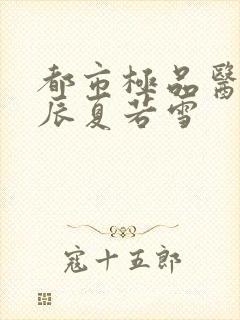 都市極品醫
辰夏若雪
寇十五郎